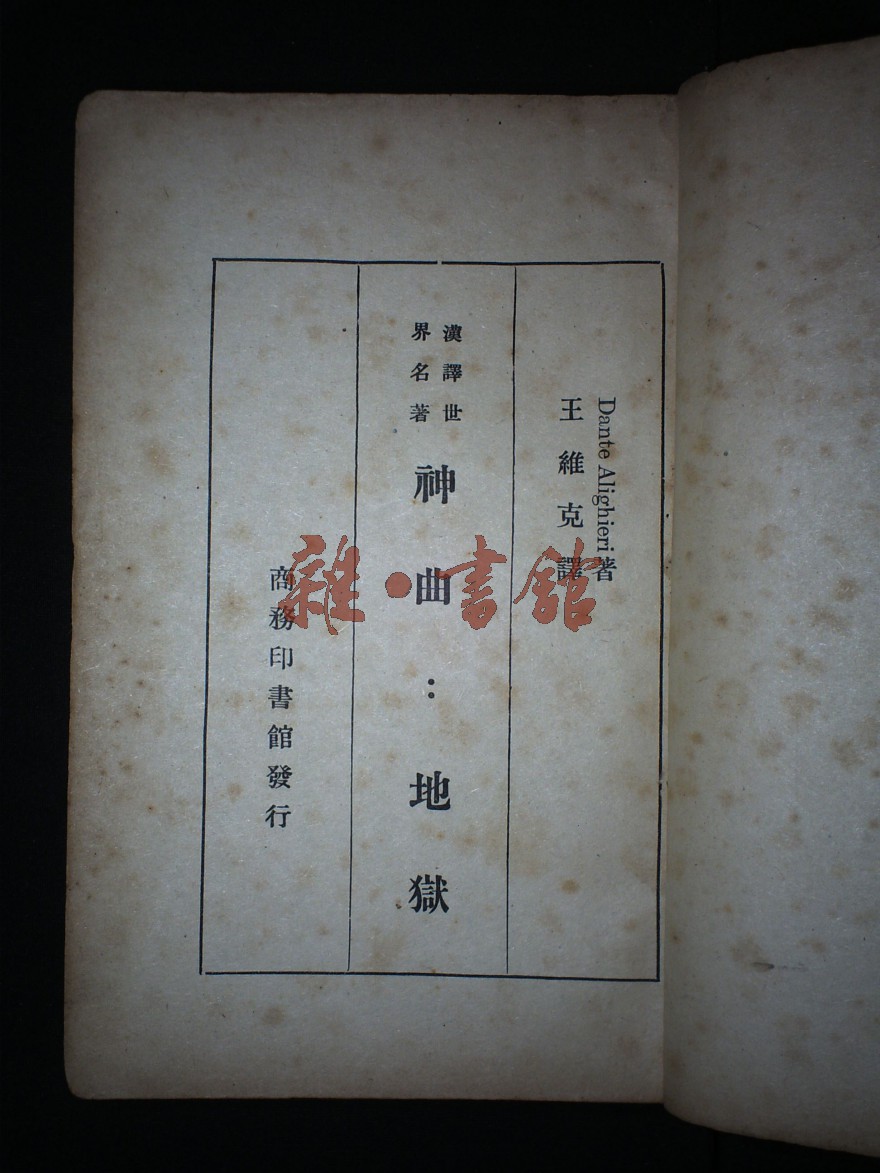 Dante Alighieri著
王維克譯
漢譯世
界名著
神曲：地獄
商務印書館發行
雜·書館